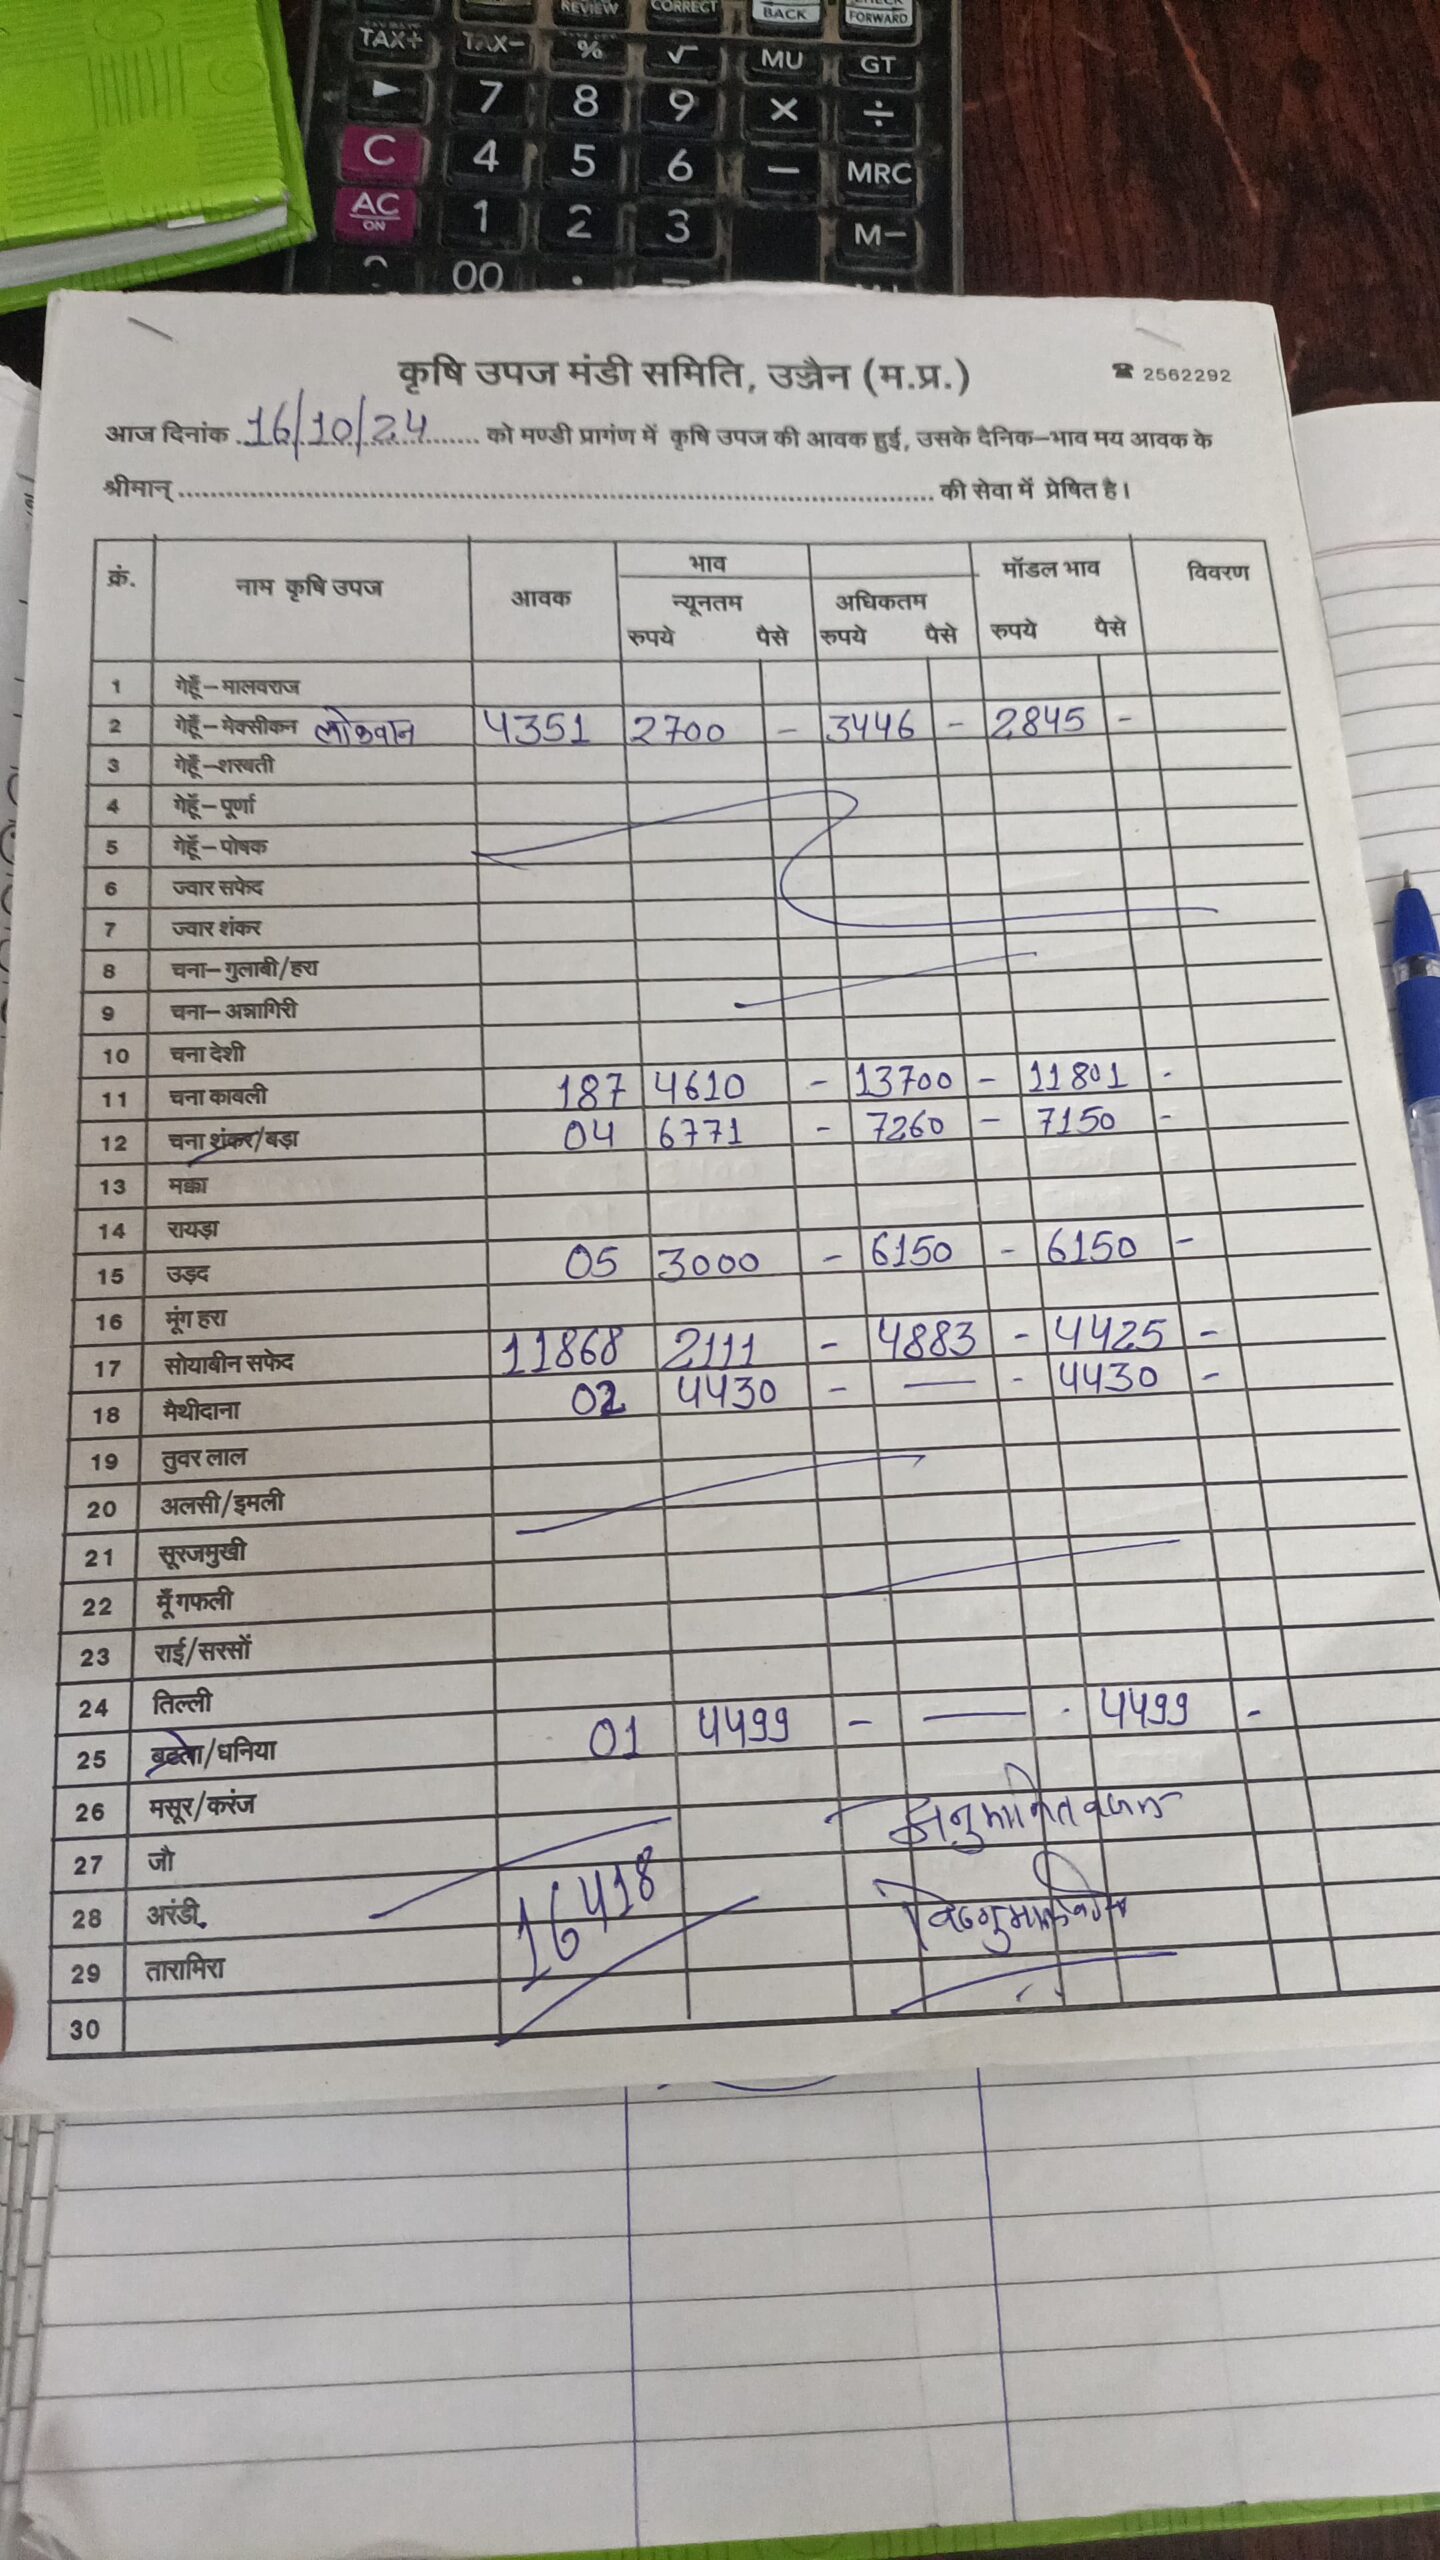 REVIEW CORRECT BACK CHECK FORWARD
TAX+ TAX- % √ MU GT
7 8 9 × ÷
C 4 5 6 − MRC
AC ON 1 2 3 M−
00 .
कृषि उपज मंडी समिति, उज्जैन (म.प्र.) ☎ 2562292
आज दिनांक 16/10/24 को मण्डी प्रागंण में कृषि उपज की आवक हुई, उसके दैनिक-भाव मय आवक के
श्रीमान् की सेवा में प्रेषित है।
क्रं. नाम कृषि उपज आवक भाव मॉडल भाव विवरण
न्यूनतम अधिकतम
रुपये पैसे रुपये पैसे रुपये पैसे
1 गेहूँ-मालवराज
2 गेहूँ-मेक्सीकन लोकवान 4351 2700 - 3446 - 2845 -
3 गेहूँ-शरबती
4 गेहूँ-पूर्णा
5 गेहूँ-पोषक
6 ज्वार सफेद
7 ज्वार शंकर
8 चना-गुलाबी/हरा
9 चना-अन्नागिरी
10 चना देशी
11 चना काबली 187 4610 - 13700 - 11801 -
12 चना शंकर/बड़ा 04 6771 - 7260 - 7150 -
13 मक्का
14 रायड़ा
15 उड़द 05 3000 - 6150 - 6150 -
16 मूंग हरा
17 सोयाबीन सफेद 11868 2111 - 4883 - 4425 -
18 मैथीदाना 02 4430 - — - 4430 -
19 तुवर लाल
20 अलसी/इमली
21 सूरजमुखी
22 मूँगफली
23 राई/सरसों
24 तिल्ली
25 बटला/धनिया 01 4499 - — - 4499 -
26 मसूर/करंज
अनुमानित वजन
27 जौ
28 अरंडी
16418
29 तारामिरा
30